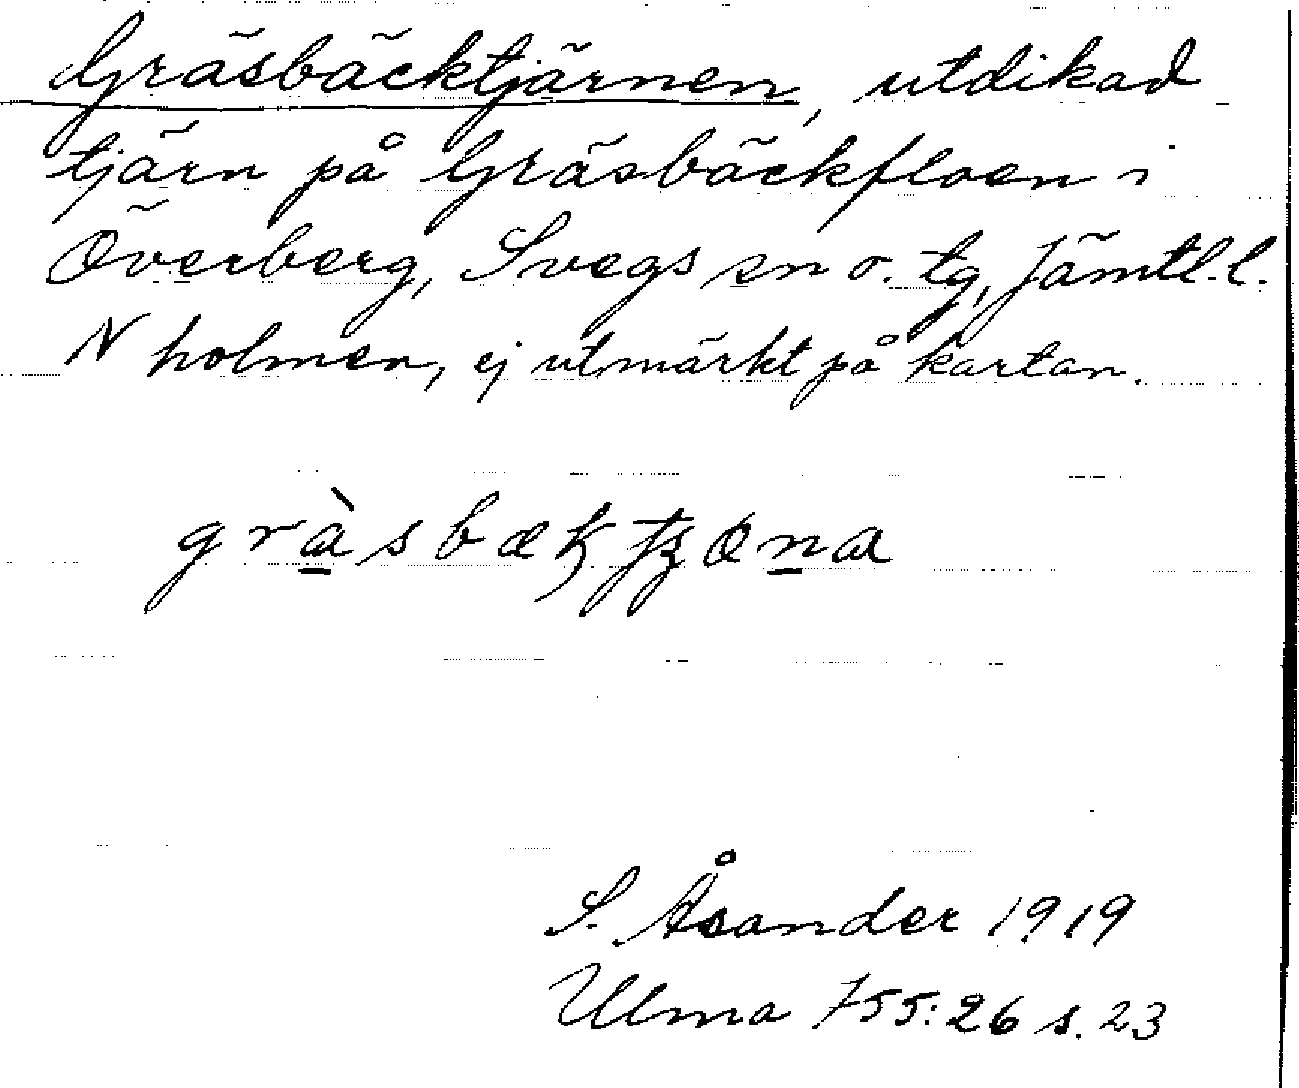 Gräsbäcktjärnen, utdikad
tjärn på Gräsbäckfloen i
Överberg, Svegs sn o. tg, Jämtl. l.
N holmen, ej utmärkt på kartan.
S. Åsander 1919
Ulma 755:26 s. 23